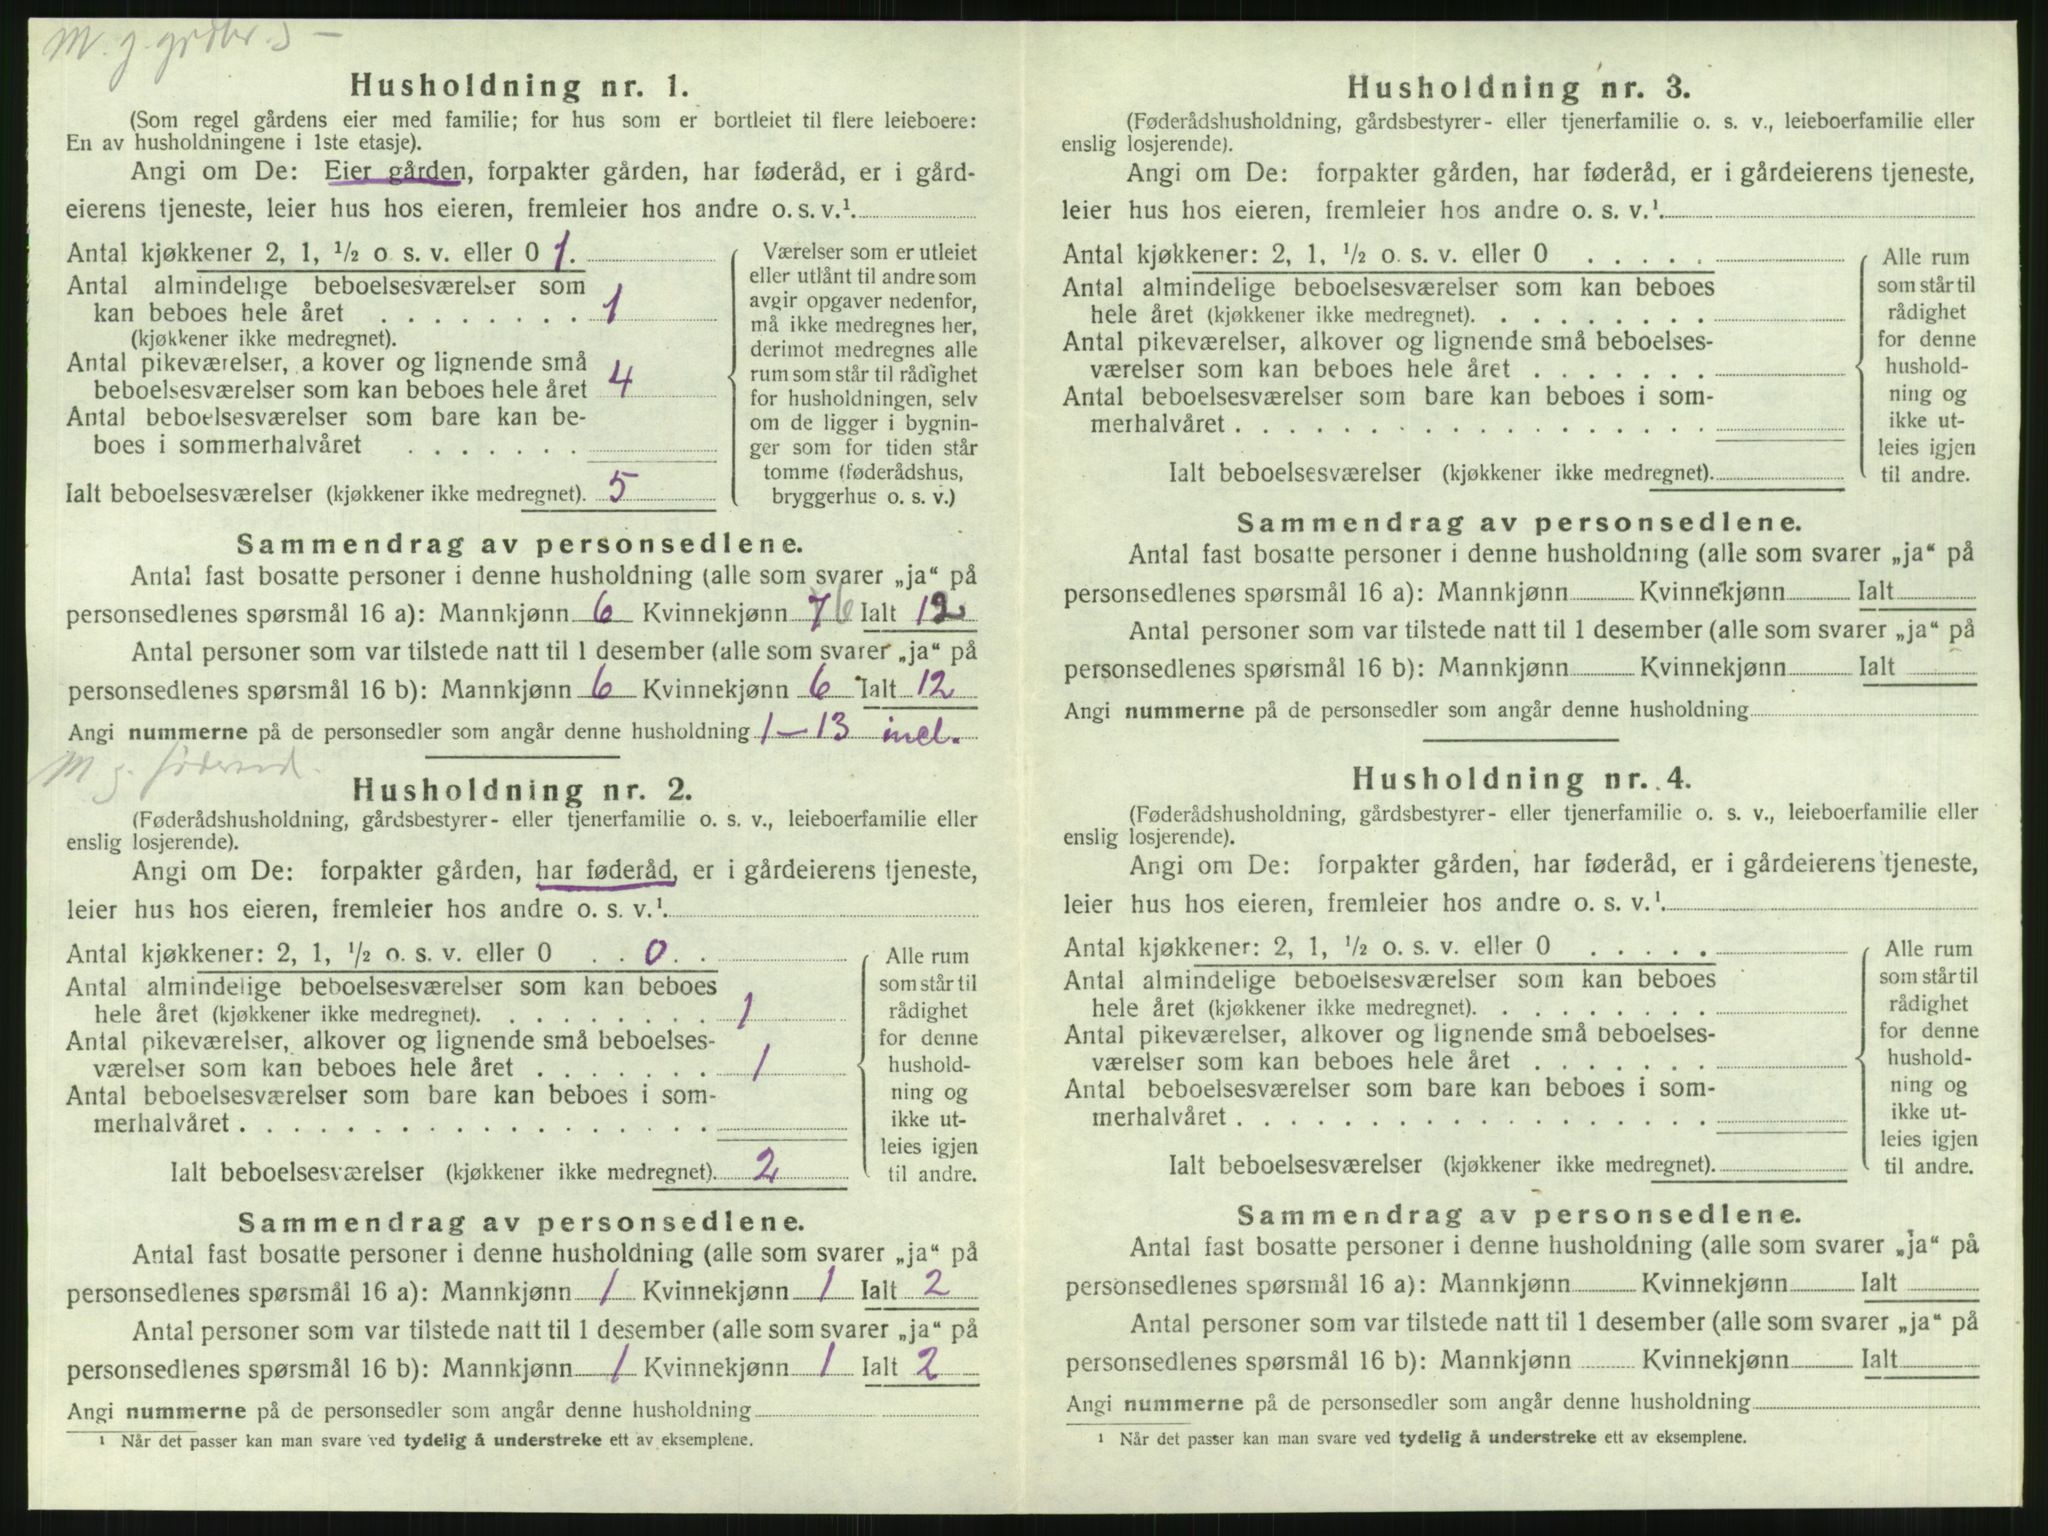 M. g. grdbr. s –
Husholdning nr. 1.
(Som regel gårdens eier med familie; for hus som er bortleiet til flere leieboere:
En av husholdningene i 1ste etasje).
Angi om De: Eier gården, forpakter gården, har føderåd, er i gård-
eierens tjeneste, leier hus hos eieren, fremleier hos andre o. s. v.¹.
Antal kjøkkener 2, 1, ½ o s. v. eller 0 1.
Antal almindelige beboelsesværelser som
kan beboes hele året . . . . . . . . 1
(kjøkkener ikke medregnet).
Antal pikeværelser, a kover og lignende små
beboelsesværelser som kan beboes hele året 4
Antal beboelsesværelser som bare kan be-
boes i sommerhalvåret . . . . . . .
Ialt beboelsesværelser (kjøkkener ikke medregnet). 5
Værelser som er utleiet
eller utlånt til andre som
avgir opgaver nedenfor,
må ikke medregnes her,
derimot medregnes alle
rum som står til rådighet
for husholdningen, selv
om de ligger i bygnin-
ger som for tiden står
tomme (føderådshus,
bryggerhus o. s. v.)
Sammendrag av personsedlene.
Antal fast bosatte personer i denne husholdning (alle som svarer „ja“ på
personsedlenes spørsmål 16 a): Mannkjønn 6 Kvinnekjønn 7 6 Ialt 12
Antal personer som var tilstede natt til 1 desember (alle som svarer „ja“ på
personsedlenes spørsmål 16 b): Mannkjønn 6 Kvinnekjønn 6 Ialt 12
Angi nummerne på de personsedler som angår denne husholdning 1–13 incl.
M g. føderåd.
Husholdning nr. 2.
(Føderådshusholdning, gårdsbestyrer- eller tjenerfamilie o. s. v., leieboerfamilie eller
enslig losjerende).
Angi om De: forpakter gården, har føderåd, er i gårdeierens tjeneste,
leier hus hos eieren, fremleier hos andre o. s. v.¹.
Antal kjøkkener: 2, 1, ½ o. s. v. eller 0 . . 0 . .
Antal almindelige beboelsesværelser som kan beboes
hele året (kjøkkener ikke medregnet). . . . . . . . . 1
Antal pikeværelser, alkover og lignende små beboelses-
værelser som kan beboes hele året . . . . . . . 1
Antal beboelsesværelser som bare kan beboes i som-
merhalvåret . . . . . . . . . . . . . . . . . .
Ialt beboelsesværelser (kjøkkener ikke medregnet). 2
Alle rum
som står til
rådighet
for denne
hushold-
ning og
ikke ut-
leies igjen
til andre.
Sammendrag av personsedlene.
Antal fast bosatte personer i denne husholdning (alle som svarer „ja“ på
personsedlenes spørsmål 16 a): Mannkjønn 1 Kvinnekjønn 1 Ialt 2
Antal personer som var tilstede natt til 1 desember (alle som svarer „ja“ på
personsedlenes spørsmål 16 b): Mannkjønn 1 Kvinnekjønn 1 Ialt 2
Angi nummerne på de personsedler som angår denne husholdning
¹ Når det passer kan man svare ved tydelig å understreke ett av eksemplene.
Husholdning nr. 3.
(Føderådshusholdning, gårdsbestyrer- eller tjenerfamilie o. s. v., leieboerfamilie eller
enslig losjerende).
Angi om De: forpakter gården, har føderåd, er i gårdeierens tjeneste,
leier hus hos eieren, fremleier hos andre o. s. v.¹.
Antal kjøkkener: 2, 1, ½ o. s. v. eller 0 . . . . .
Antal almindelige beboelsesværelser som kan beboes
hele året (kjøkkener ikke medregnet). . . . . . . . .
Antal pikeværelser, alkover og lignende små beboelses-
værelser som kan beboes hele året . . . . . . .
Antal beboelsesværelser som bare kan beboes i som-
merhalvåret . . . . . . . . . . . . . . . . . .
Ialt beboelsesværelser (kjøkkener ikke medregnet).
Alle rum
som står til
rådighet
for denne
hushold-
ning og
ikke ut-
leies igjen
til andre.
Sammendrag av personsedlene.
Antal fast bosatte personer i denne husholdning (alle som svarer „ja“ på
personsedlenes spørsmål 16 a): Mannkjønn Kvinnekjønn Ialt
Antal personer som var tilstede natt til 1 desember (alle som svarer „ja“ på
personsedlenes spørsmål 16 b): Mannkjønn Kvinnekjønn Ialt
Angi nummerne på de personsedler som angår denne husholdning
Husholdning nr. 4.
(Føderådshusholdning, gårdsbestyrer- eller tjenerfamilie o. s. v., leieboerfamilie eller
enslig losjerende).
Angi om De: forpakter gården, har føderåd, er i gårdeierens tjeneste,
leier hus hos eieren, fremleier hos andre o. s. v.¹.
Antal kjøkkener: 2, 1, ½ o. s. v. eller 0 . . . . .
Antal almindelige beboelsesværelser som kan beboes
hele året (kjøkkener ikke medregnet). . . . . . . . .
Antal pikeværelser, alkover og lignende små beboelses-
værelser som kan beboes hele året . . . . . . .
Antal beboelsesværelser som bare kan beboes i som-
merhalvåret . . . . . . . . . . . . . . . . . .
Ialt beboelsesværelser (kjøkkener ikke medregnet).
Alle rum
som står til
rådighet
for denne
hushold-
ning og
ikke ut-
leies igjen
til andre.
Sammendrag av personsedlene.
Antal fast bosatte personer i denne husholdning (alle som svarer „ja“ på
personsedlenes spørsmål 16 a): Mannkjønn Kvinnekjønn Ialt
Antal personer som var tilstede natt til 1 desember (alle som svarer „ja“ på
personsedlenes spørsmål 16 b): Mannkjønn Kvinnekjønn Ialt
Angi nummerne på de personsedler som angår denne husholdning
¹ Når det passer kan man svare ved tydelig å understreke ett av eksemplene.